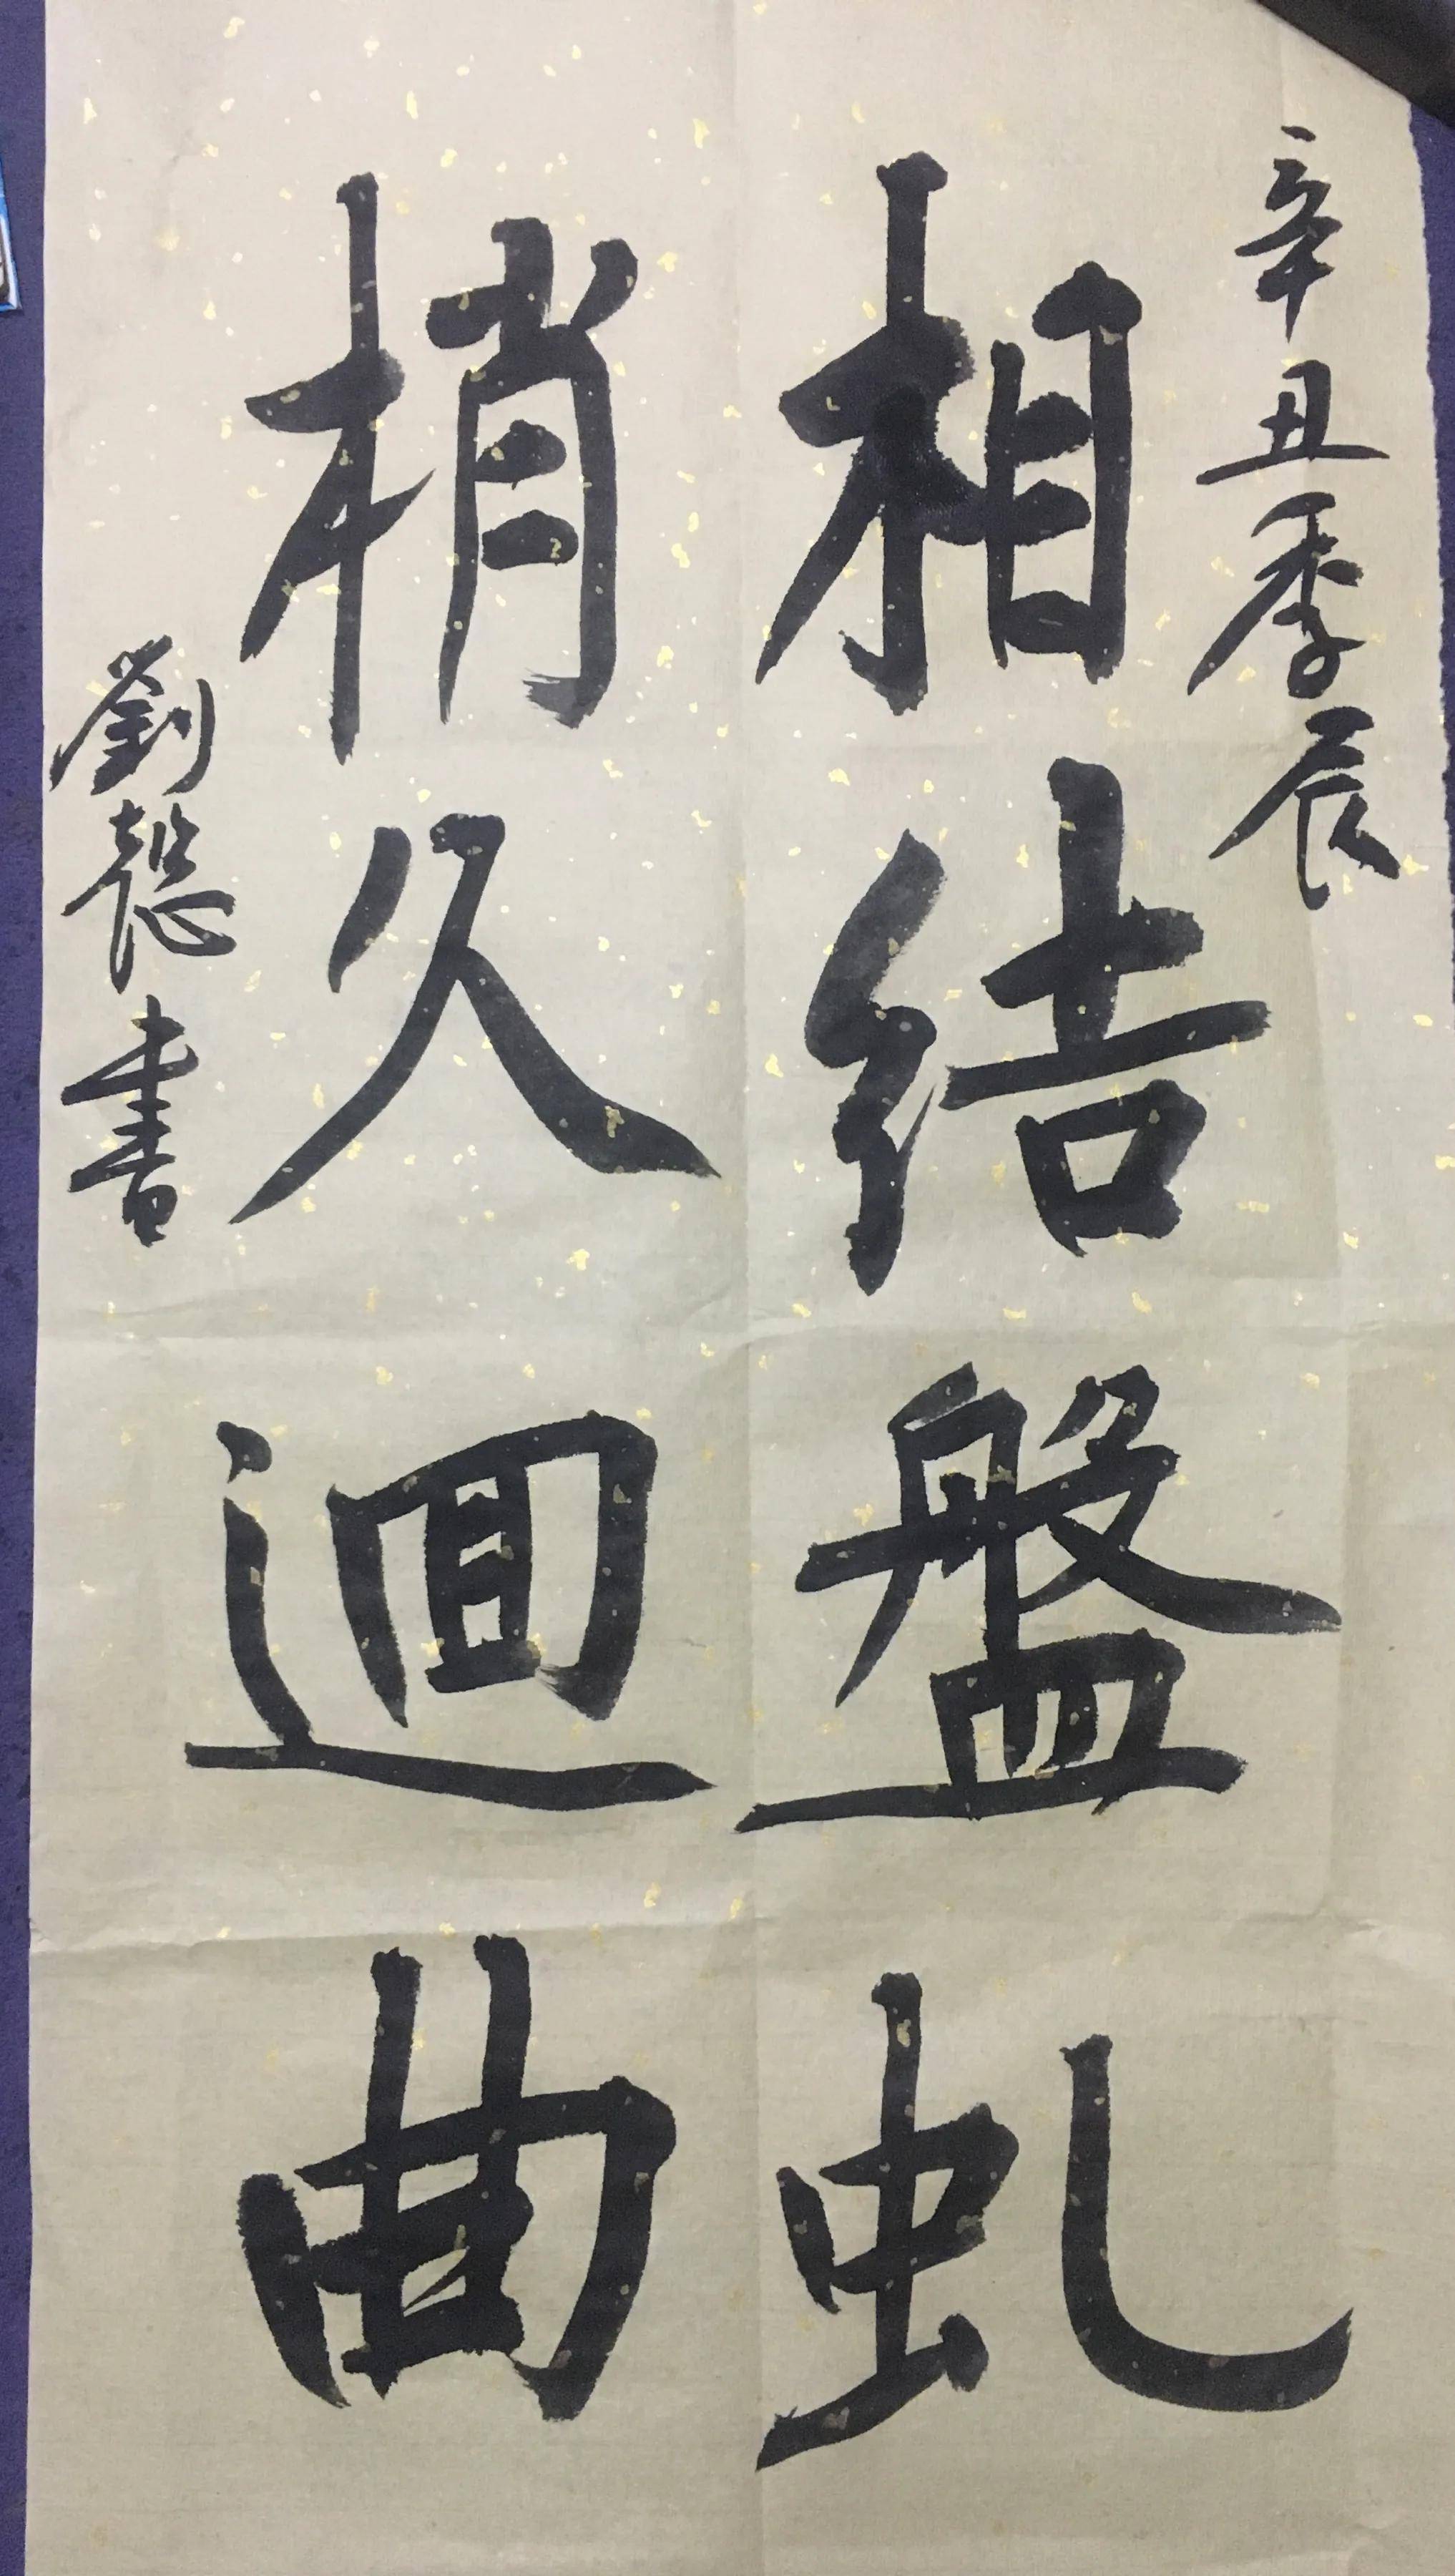 辛丑季辰
相結盤虬
梢久迴曲
劉懿書